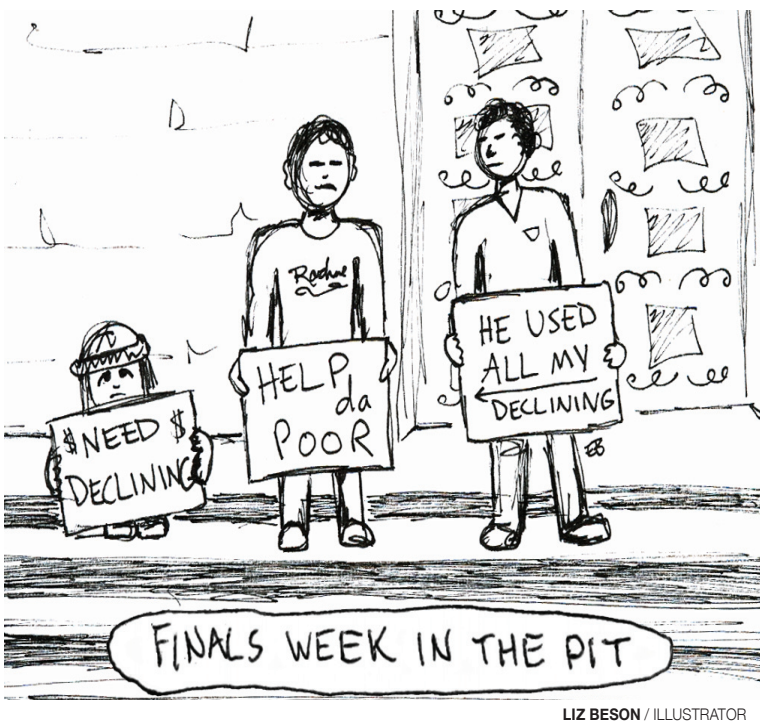 $ NEED $
DECLINING
HELP
da
POOR
HE USED
ALL MY
DECLINING
EB
FINALS WEEK IN THE PIT
LIZ BESON / ILLUSTRATOR